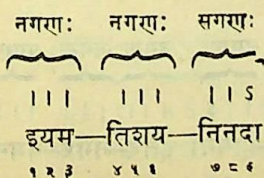 नगरणः नगरणः सगरणः
। । । । । । । । ऽ
इयम—तिशय—निनदा
१ २ ३ ४ ५ ६ ७ ८ ९